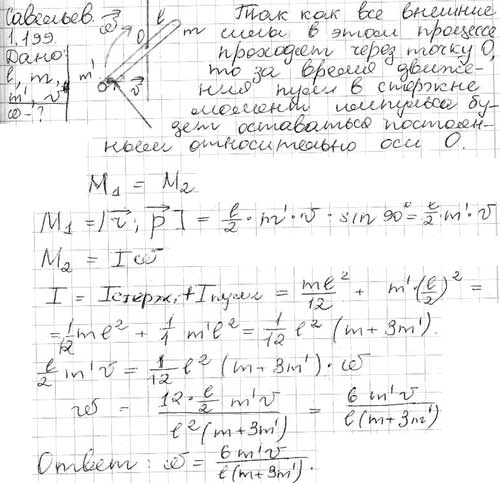 Савельев.
1.199
Дано:
l, m,
m', v
ω - ?
ω⃗
l
O
m
m'
v⃗
Так как все внешние
силы в этом процессе
проходят через точку O,
то за время движе-
ния пули в стержне
момент импульса бу-
дет оставаться постоян-
ным относительно оси O.
M₁ = M₂
M₁ = [r⃗; p⃗] = l/2 · m' · v · sin 90° = l/2 · m' v
M₂ = I ω
I = Iстерж. + Iпули = ml²/12 + m' · (l/2)² =
= 1/12 ml² + 1/4 m'l² = 1/12 l² (m + 3m').
l/2 m' v = 1/12 l² (m + 3m') · ω
ω = 12 · l/2 m' v / l² (m + 3m') = 6 m' v / l (m + 3m')
Ответ: ω = 6 m' v / l (m + 3m').